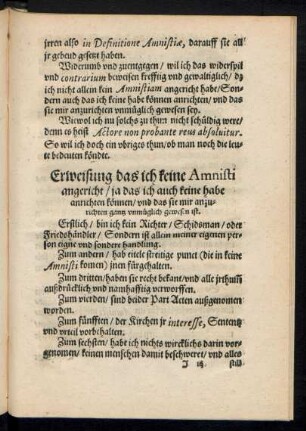 jrren also in Definitione Amnistiæ, darauff sie all
jr gebend gesetzt haben.
Widerumb vnd zuentgegen / wil ich das widerspil
vnd contrarium beweisen krefftig vnd gewaltiglich / dz
ich nicht allein kein Amnistiam angericht habe / Son-
dern auch das ich keine habe können anrichten / vnd das
sie mir anzurichten vnmüglich gewesen sey.
Wie wol ich nu solchs zu thun nicht schüldig wert /
denn es heist Actore non probante reus absoluitur.
So wil ich doch ein vbriges thun / ob man noch die leu-
te bedeuten köndte.
Erweisung das ich keine Amnisti
angericht / ja das ich auch keine habe
anrichten können / vnd das sie mir anzu-
richten gantz vnmüglich gewesen ist.
Erstlich / bin ich kein Richter / Schidsman / oder
Friedshändler / Sondern ist allein meiner eigenen per-
son eigne vnd sonder handlung.
Zum andern / hab eitele streitige punct (die in keine
Amnisti komen) jnen fürgehalten.
Zum dritten / haben sie recht bekant / vnd alle jrthum
ausdrücklich vnd namhafftig verworffen.
Zum vierden / sind beider Part Acten außgenomen
worden.
Zum fünfften / der Kirchen jr interesse, Sententz
vnd vrteil vorbehalten.
Zum sechsten / habe ich nichts wircklichs darin vor-
genomen / keinen menschen damit beschweret / vnd alles
J iij still